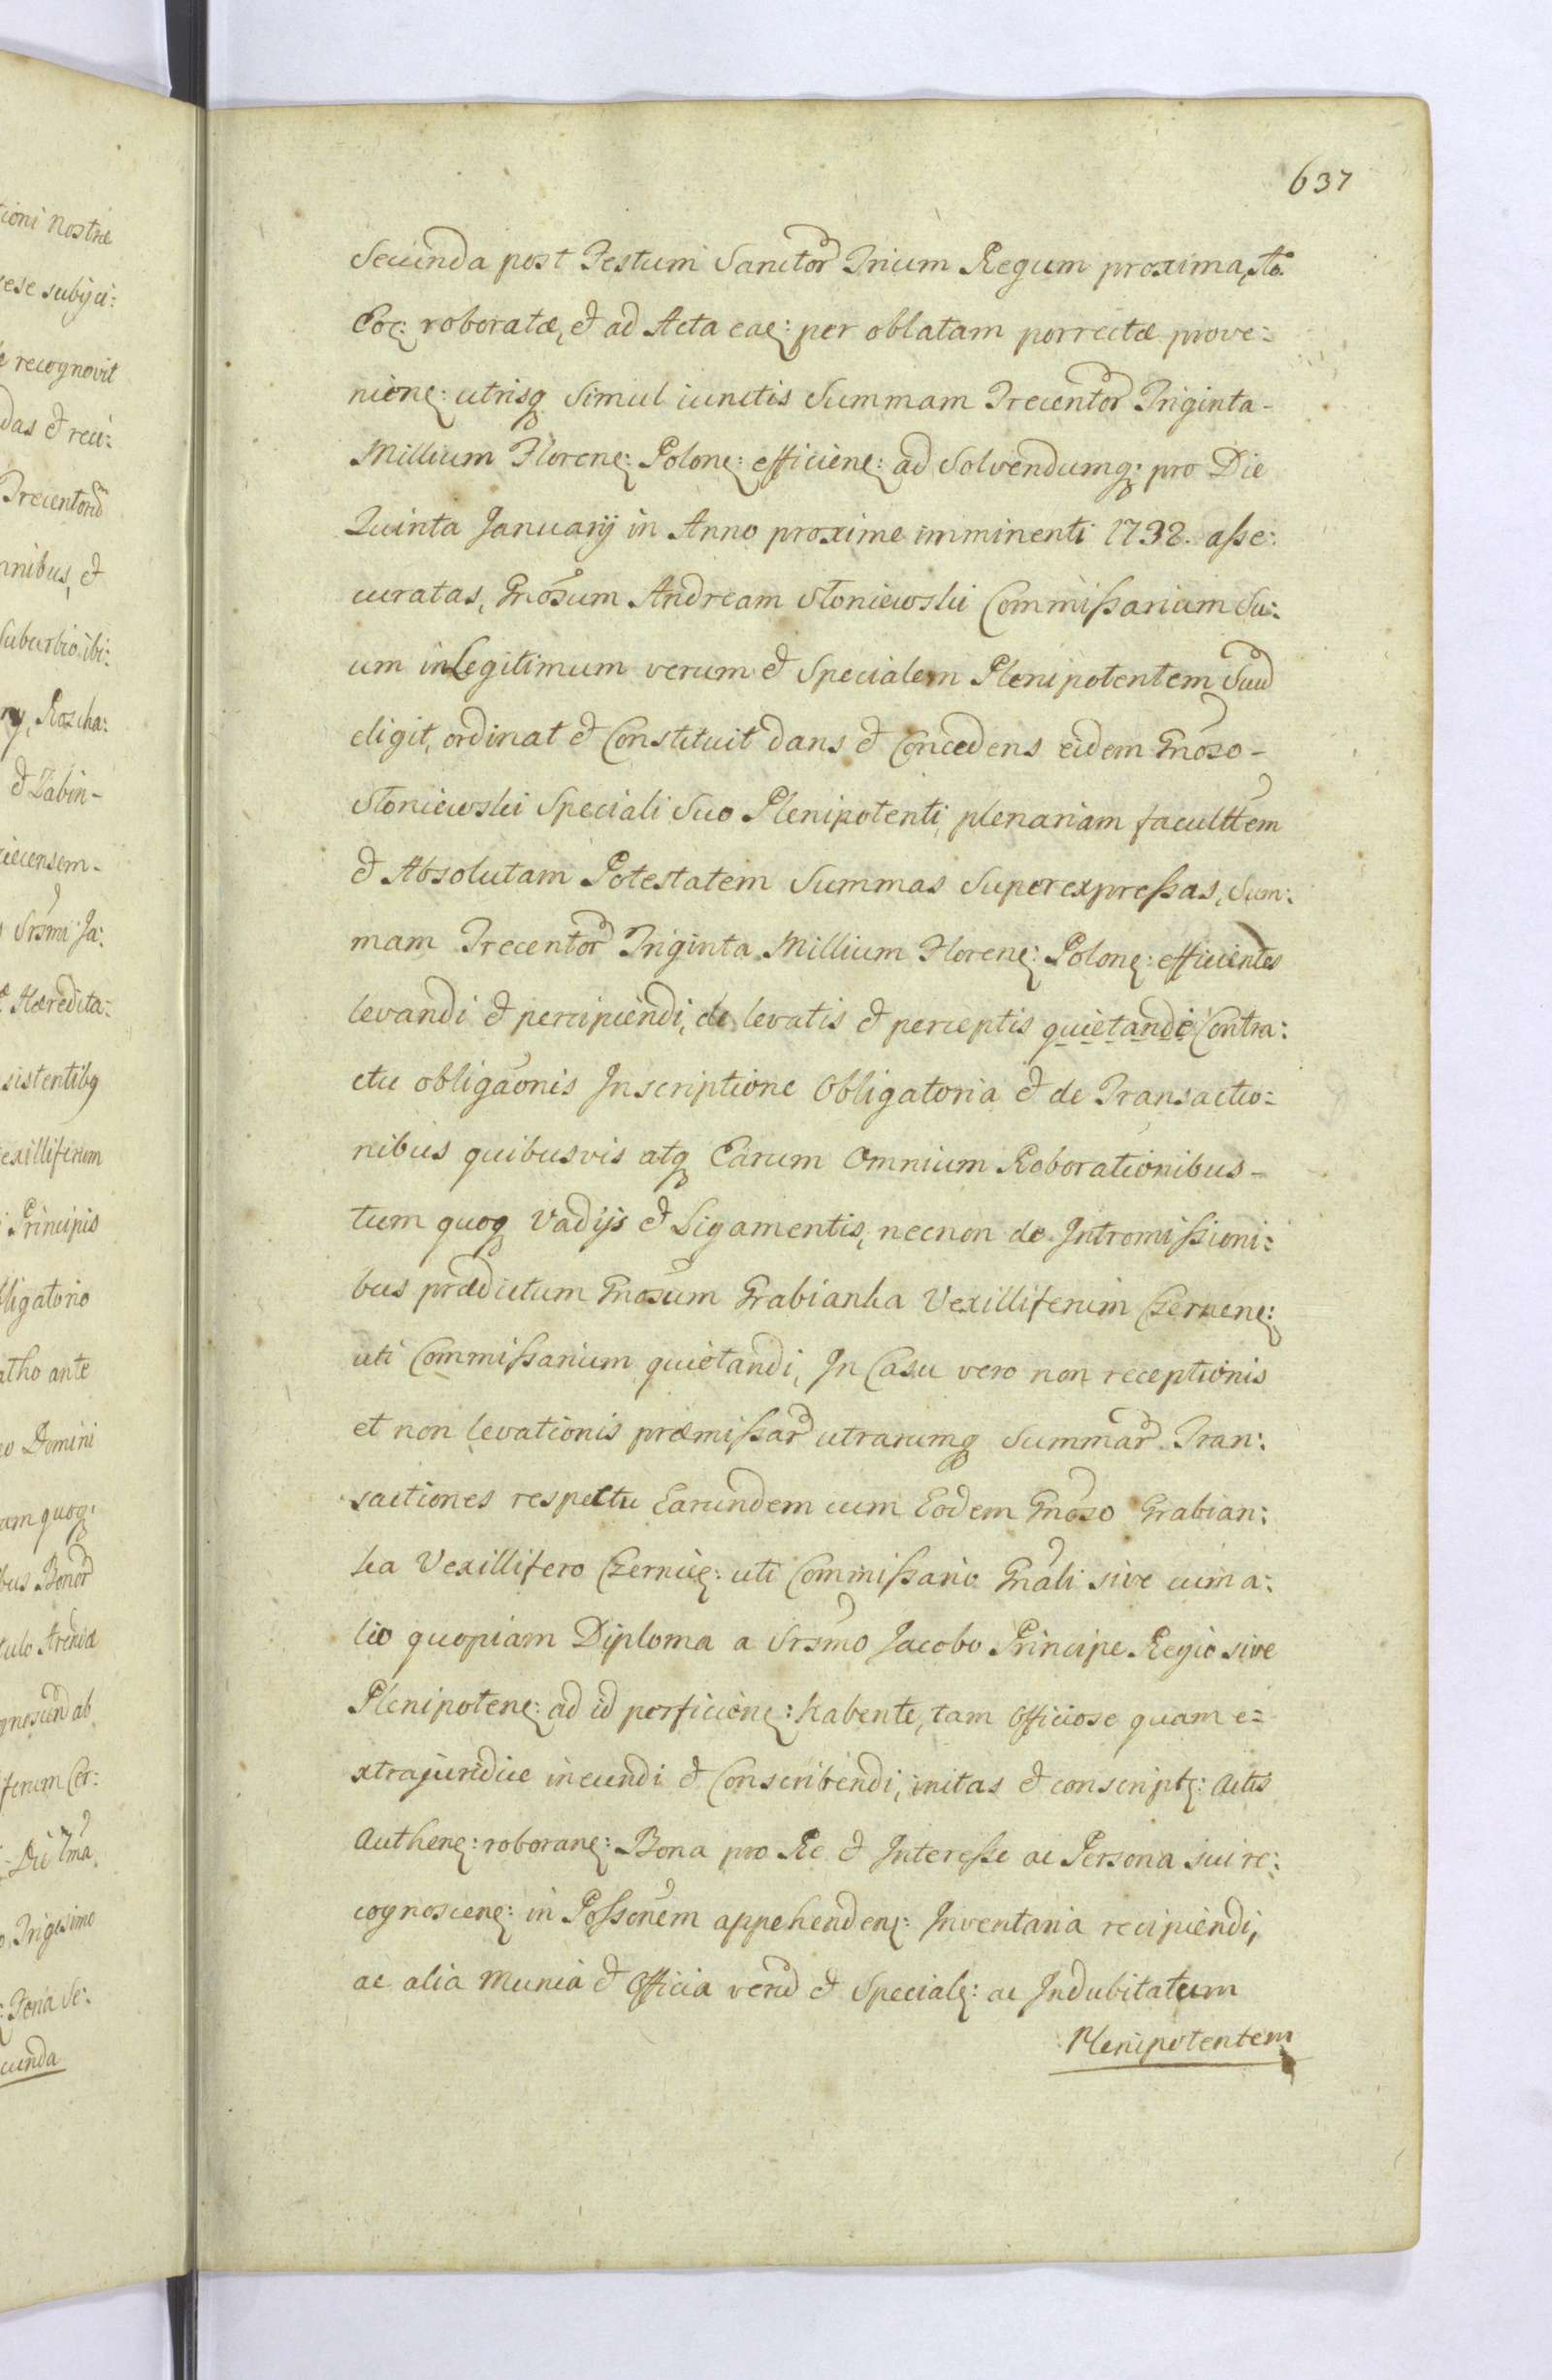 637
Secunda post Festum Sanctor Trium Regum proxima, sto
Eoq: roboratæ, et ad Acta eaq: per oblatam porrectæ prove:
nienq: utrisq simul iunctis Summam Trecentor Triginta-
Millium Florenq: Polonq: efficienq: ad Solvendumq: pro Die
Quinta January in Anno proxime imminenti 1738. asse:
curatas, Gnosum Andream Słoniewski Commissarium Su:
um in Legitimum verum et Specialem Plenipotentem Suu
eligit, ordinat et Constituit dans et Concedens eidem Gnoso-
Słoniewski Speciali Suo Plenipotenti, plenariam facultt̃em
et Absolutam Potestatem Summas Superexpressas, Sum:
mam Trecentor Triginta Millium Florenq: Polonq: efficientes
levandi et percipiendi, de levatis et perceptis quietandi Contra:
ctu obligaonis Inscriptione Obligatoria et de Transactio=
nibus quibusvis atq Earum Omnium Roborationibus-
tum quoq Vadijs et Ligamentis, necnon de Intromissioni:
bus prædictum Gnosum Grabianka Vexilliferum Czernenq:
uti Commissarium quietandi, In Casu vero non receptionis
et non levationis præmissar utrarumq Summar Tran:
sactiones respectu Earundem cum Eodem Gnoso Grabian:
ka Vexillifero Czernieq: uti Commissario Gnali sive cum a:
lio quopiam Diploma a Srsmo Jacobo Principe Regio sive
Plenipotenq: ad id perficienq: habente, tam Officiose quam e=
xtrajuridice ineundi et Conscribendi, initas et conscriptq: Actis
Authenq: roboranq: Bona pro Re et Interesse ac Persona sui re:
cognoscenq: in Possonem appehendenq: Inventaria recipiendi,
ac alia Munia et Officia veru et Specialq: ac Indubitatum
Plenipotentem